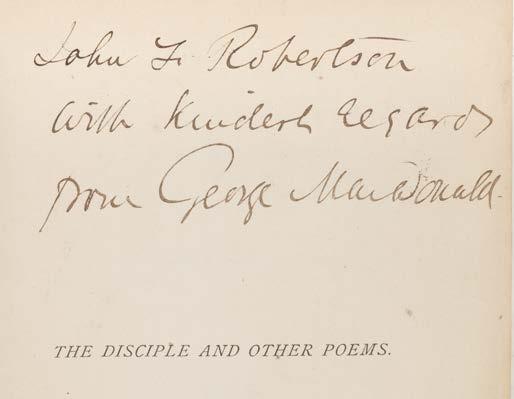 John F Robertson
with kindest regards
from George MacDonald.
THE DISCIPLE AND OTHER POEMS.